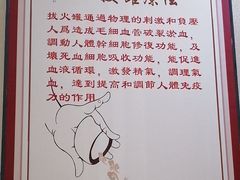 拔罐療法
拔火罐通過物理的刺激和負壓
人爲造成毛細血管破裂淤血，
調動人體幹細胞修復功能，及
壞死血細胞吸收功能，能促進
血液循環，激發精氣，調理氣
血，達到提高和調節人體免疫
力的作用